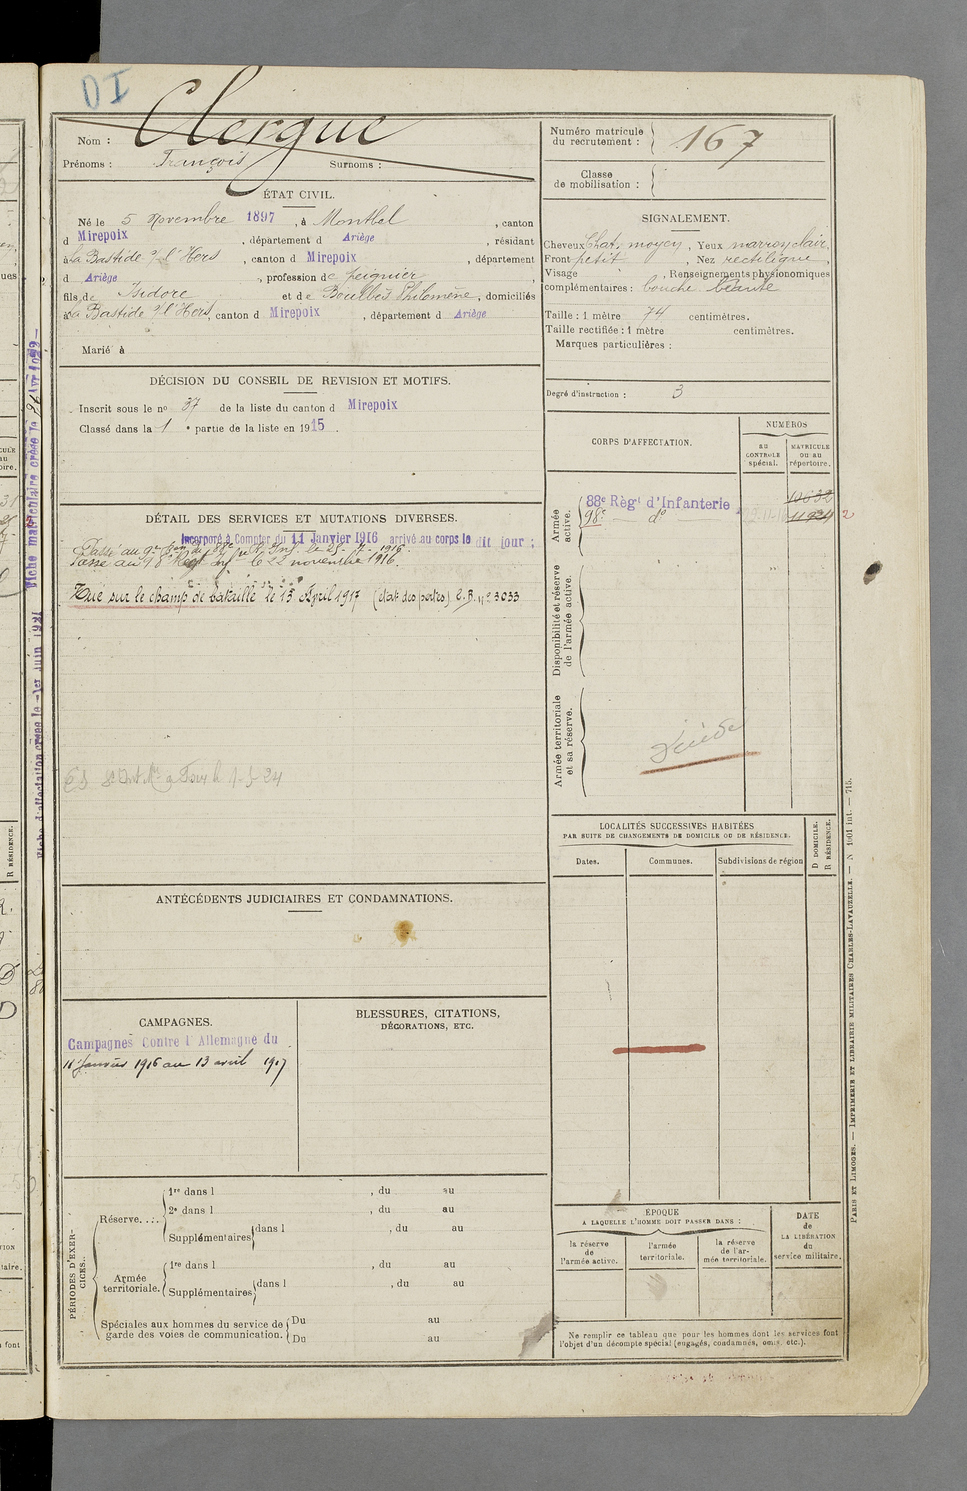 DI
Nom : Clergue
Prénoms : François Surnoms :
Numéro matricule du recrutement : 167
Classe de mobilisation :
ÉTAT CIVIL.
Né le 5 Novembre 1897, à Montbel, canton
d Mirepoix, département d Ariège, résidant
à la Bastide s/ l'Hers, canton d Mirepoix, département
d Ariège, profession de peignier
fils de Isidore et de Boulbès Philomène, domiciliés
à la Bastide s/ l'Hers, canton d Mirepoix, département d Ariège
Marié à
SIGNALEMENT.
Cheveux chat. moyen, Yeux marron clair,
Front petit, Nez rectiligne,
Visage , Renseignements physionomiques
complémentaires : bouche béante
Taille : 1 mètre 74 centimètres.
Taille rectifiée : 1 mètre centimètres.
Marques particulières :
Degré d'instruction : 3
DÉCISION DU CONSEIL DE REVISION ET MOTIFS.
Inscrit sous le no 37 de la liste du canton d Mirepoix
Classé dans la 1 e partie de la liste en 1915.
CORPS D'AFFECTATION.
NUMÉROS
au CONTROLE spécial.
MATRICULE ou au répertoire.
Armée active.
88e Règt d'Infanterie 10632
98e do 11934 2
Disponibilité et réserve de l'armée active.
Armée territoriale et sa réserve.
Décédé
DÉTAIL DES SERVICES ET MUTATIONS DIVERSES.
Incorporé à Compter du 11 Janvier 1916 arrivé au corps le dit jour :
Passé au 9e Bon du Rt Inf. le 25 - 7 - 1916.
Passé au 98 Regt Inf le 22 novembre 1916.
Tué sur le champ de bataille le 13 April 1917 (état des pertes) E.B. no 23033
LOCALITÉS SUCCESSIVES HABITÉES
PAR SUITE DE CHANGEMENTS DE DOMICILE OU DE RÉSIDENCE.
Dates. Communes. Subdivisions de région
D DOMICILE.
R RÉSIDENCE.
ANTÉCÉDENTS JUDICIAIRES ET CONDAMNATIONS.
CAMPAGNES.
Campagnes Contre l'Allemagne du
11 Janvier 1916 au 13 avril 1917
BLESSURES, CITATIONS,
DÉCORATIONS, ETC.
PÉRIODES D'EXERCICES.
Réserve.
1re dans l , du au
2e dans l , du au
Supplémentaires dans l , du au
Armée territoriale.
1re dans l , du au
Supplémentaires dans l , du au
Spéciales aux hommes du service de garde des voies de communication.
Du au
Du au
ÉPOQUE
A LAQUELLE L'HOMME DOIT PASSER DANS :
la réserve de l'armée active.
l'armée territoriale.
la réserve de l'armée territoriale.
DATE de LA LIBÉRATION du service militaire.
Ne remplir ce tableau que pour les hommes dont les services font
l'objet d'un décompte spécial (engagés, condamnés, omis, etc.).
PARIS ET LIMOGES. — IMPRIMERIE ET LIBRAIRIE MILITAIRES CHARLES-LAVAUZELLE. — N 1001 int. — 715.